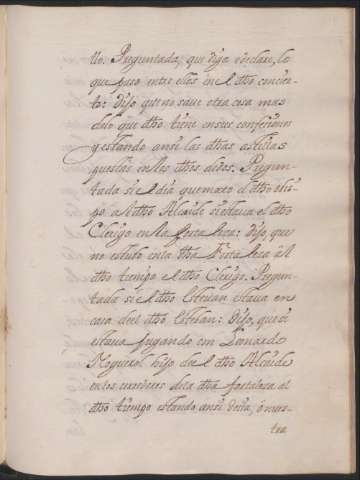 llo. Preguntada, que diga y declare, lo
que paso entre ellos en el dho concier-
to: Dijo que no saue otra cosa mas
delo que dho tiene en sus confesiones
y estando ansi las dhas astillas
puestas en los dhos dedos. Pregun-
tada si el dia que mato el dho
al dho Alcaide si estaua el dho
Clerigo en la fortaleza: Dijo, que
no estubo en la dha Fortaleza al
dho tiempo el dho Clerigo. Pregun-
tada si el dho Esteuan estaua en
casa del dho Esteban: Dijo, que si
estaua jugando con Leonardo
Noguerol hijo del dho Alcaide
en los corredores dela dha fortaleza al
dho tiempo estando ansi desta, o nues-
tra